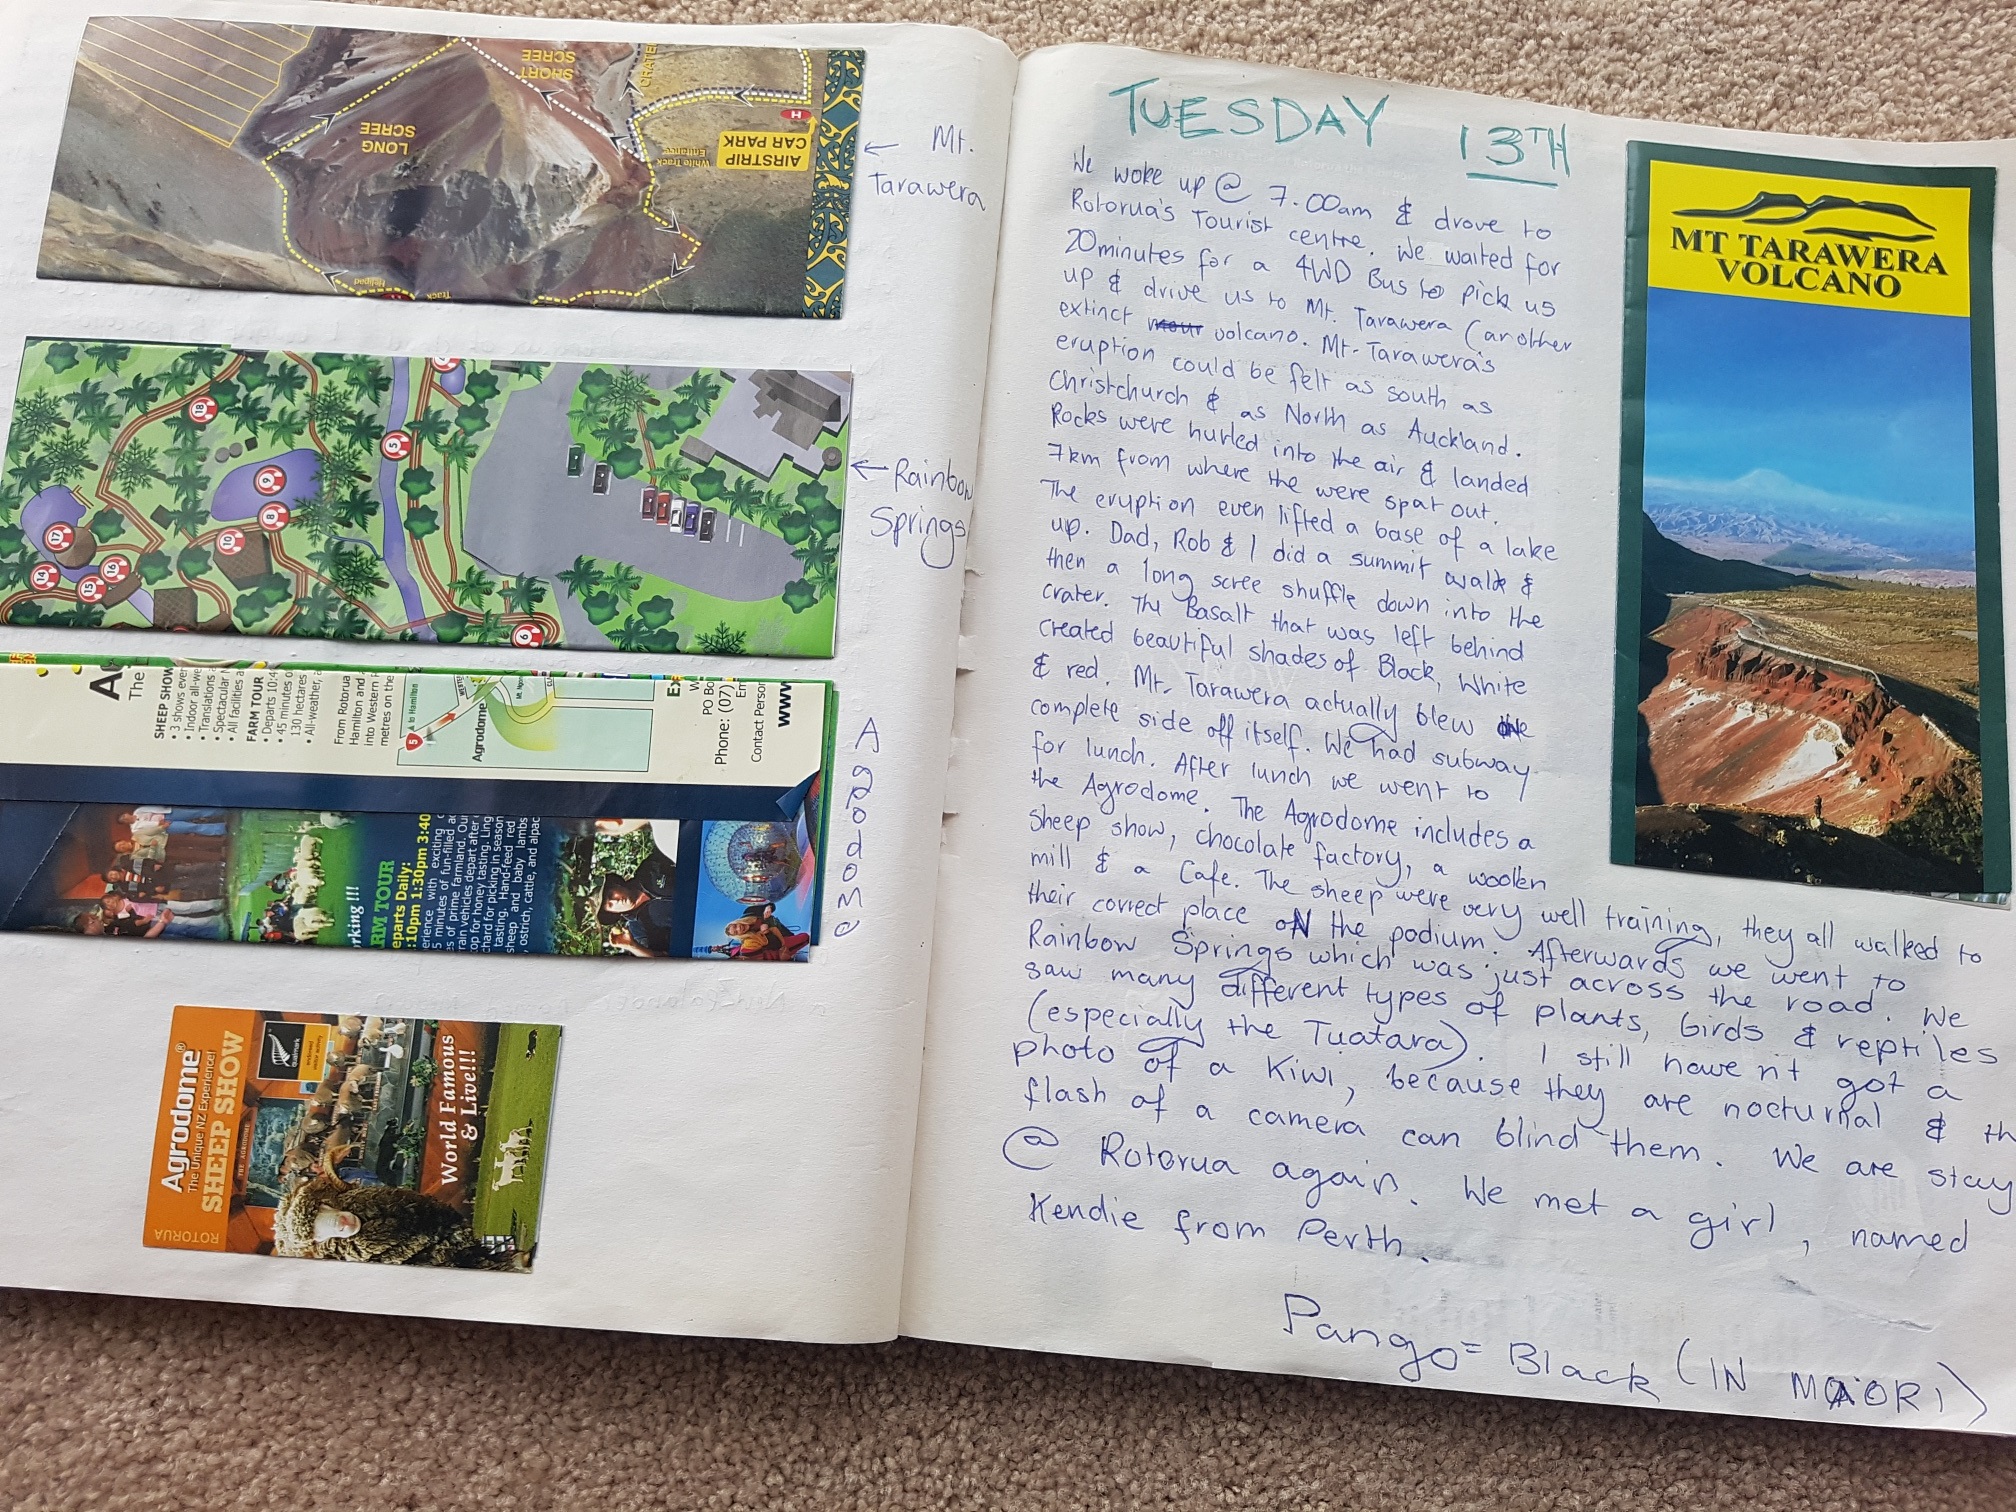 SHORT
SCREE
LONG
SCREE
CRATER
AIRSTRIP
CAR PARK
White Track
Entrance
H
Helipad
Track
← Mt.
Tarawera
18
5
9
8
10
17
14
15
16
6
← Rainbow
Springs
The
SHEEP SHOW
• 3 shows ever
• Indoor all-we
• Translations
• Spectacular
• All facilities a
FARM TOUR
• Departs 10:4
• 45 minutes o
130 hectares
• All-weather,
From Rotorua
Hamilton and
into Western
metres on the
5
to Hamilton
Agrodome
PO Bo
Phone: (07)
Contact Person
www
rking!!!
RM TOUR
eparts Daily:
:10pm 1:30pm 3:40
erience with exciting
5 minutes of fun-filled
es of prime farmland. Ou
rain vehicles depart after
op for honey tasting. Ling
chard for picking in season
tasting. Hand-feed red
sheep and baby lambs
, ostrich, cattle, and alpac
Agrodome
Agrodome®
The Unique NZ Experience!
SHEEP SHOW
ROTORUA
qualmark
THE AGRODOME
World Famous
& Live!!!
TUESDAY 13TH
We woke up @ 7.00am & drove to
Rotorua's Tourist centre. We waited for
20minutes for a 4WD Bus to pick us
up & drive us to Mt. Tarawera (another
extinct mour volcano. Mt. Tarawera's
eruption could be felt as south as
Christchurch & as North as Auckland.
Rocks were hurled into the air & landed
7km from where the were spat out.
The eruption even lifted a base of a lake
up. Dad, Rob & I did a summit walk &
then a long scree shuffle down into the
crater. The Basalt that was left behind
created beautiful shades of Black, White
& red. Mt. Tarawera actually blew one
complete side off itself. We had subway
for lunch. After lunch we went to
the Agrodome. The Agrodome includes a
sheep show, chocolate factory, a woollen
mill & a Cafe. The sheep were very well training, they all walked to
their correct place oN the podium. Afterwards we went to
Rainbow Springs which was just across the road. We
saw many different types of plants, birds & reptiles
(especially the Tuatara). I still have n't got a
photo of a Kiwi, because they are nocturnal & th
flash of a camera can blind them. We are stay
@ Rotorua again. We met a girl, named
Kendie from Perth.
Pango = Black (IN MAORI)
MT TARAWERA
VOLCANO